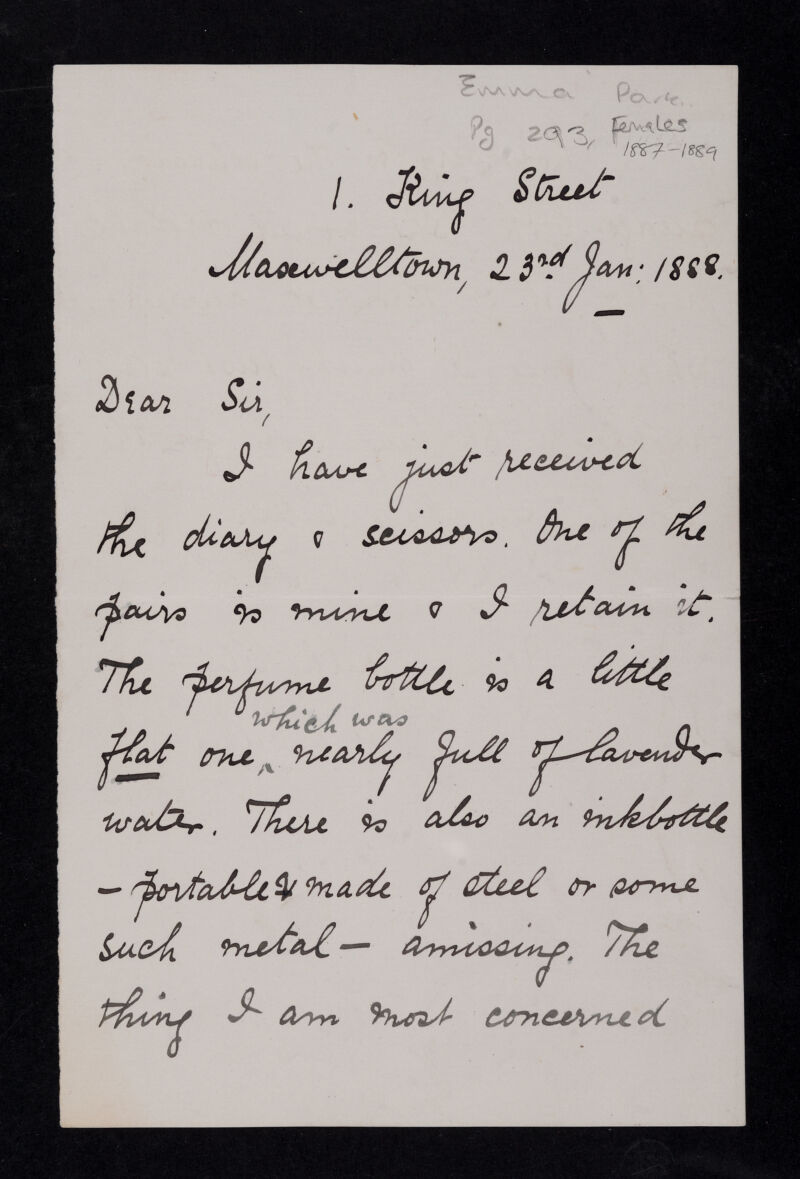 Emma Park.
Pg 293, Females
1887-1889
1. King Street
Maxwelltown, 23rd Jan: 1888.
Dear Sir,
I have just received
the diary & scissors. One of the
pairs is mine & I retain it.
The perfume bottle is a little
which was
flat one ^ nearly full of lavender
water. There is also an inkbottle
- portable & made of steel or some
such metal - amissing. The
thing I am most concerned